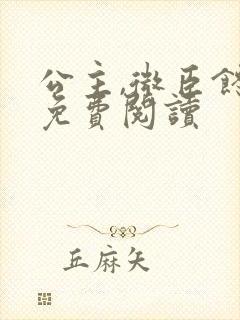 公主,微臣
免費閱讀
丘麻矢